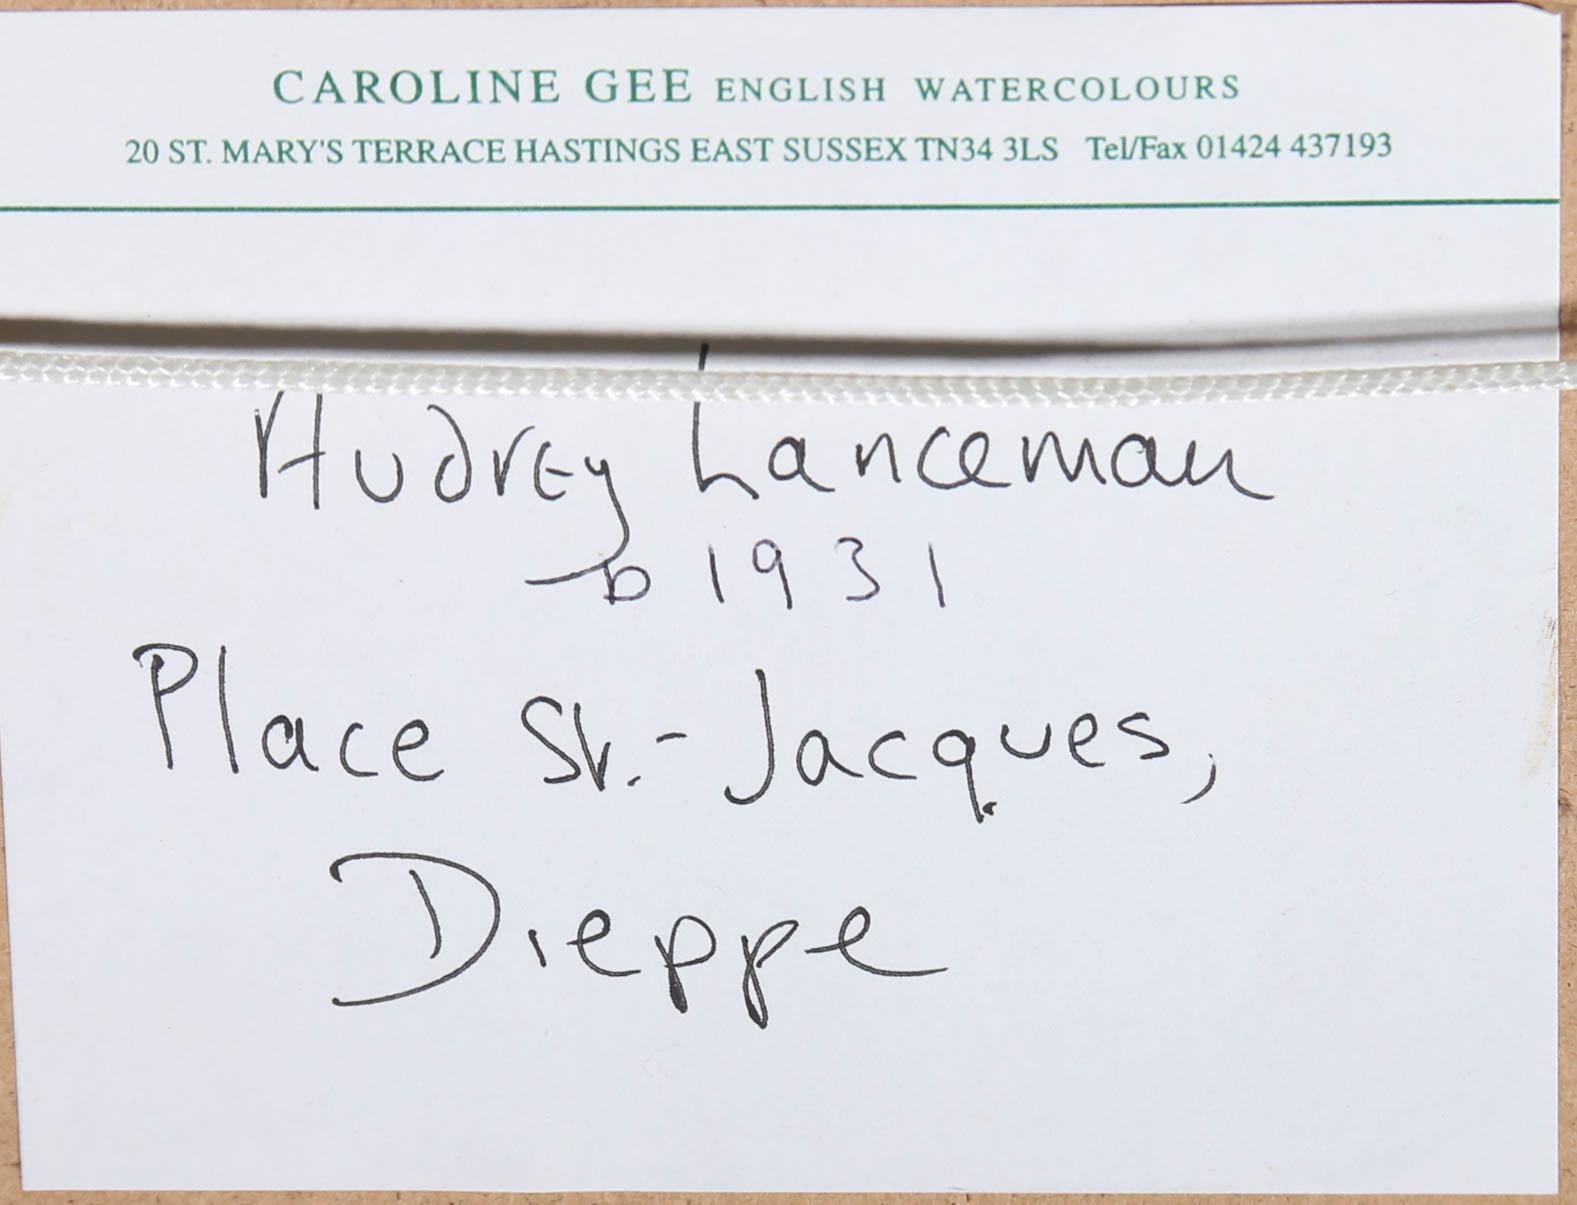 CAROLINE GEE ENGLISH WATERCOLOURS
20 ST. MARY'S TERRACE HASTINGS EAST SUSSEX TN34 3LS Tel/Fax 01424 437193
Audrey Lanceman
b 1931
Place St.-Jacques,
Dieppe